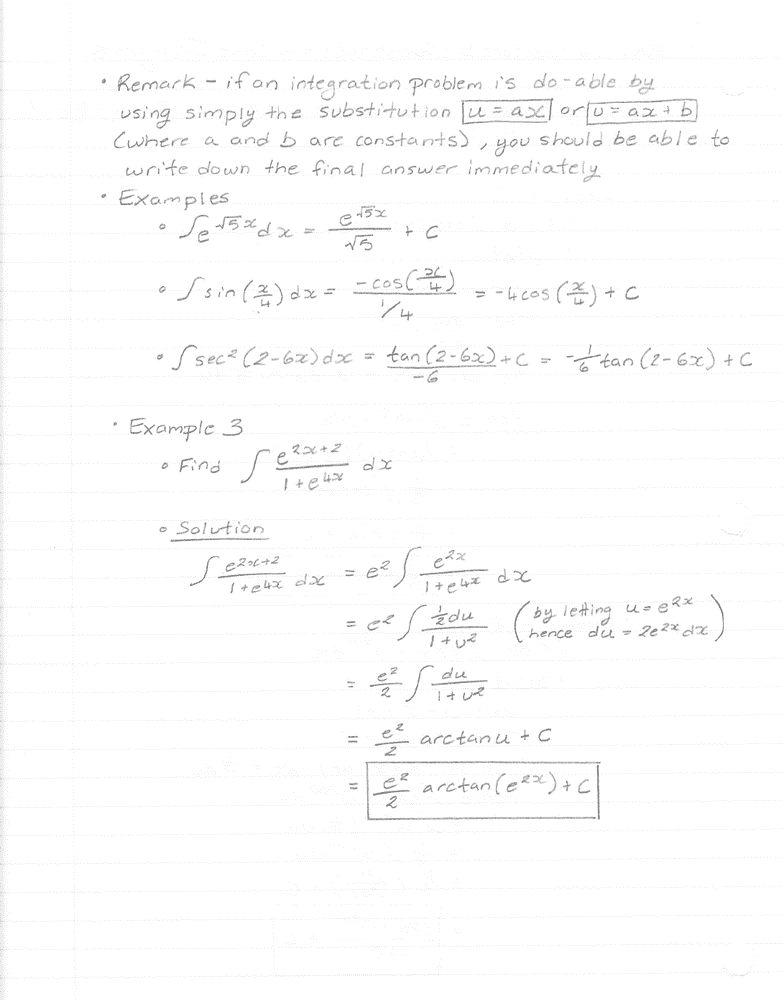 • Remark - if an integration problem is do-able by
using simply the substitution u = ax or u = ax + b
(where a and b are constants), you should be able to
write down the final answer immediately
• Examples
∘ ∫e^(√5x) dx = e^(√5x)/√5 + C
∘ ∫sin(x/4) dx = -cos(x/4)/(1/4) = -4cos(x/4) + C
∘ ∫sec²(2-6x) dx = tan(2-6x)/-6 + C = -1/6 tan(2-6x) + C
• Example 3
∘ Find ∫ e^(2x+2)/(1+e^(4x)) dx
∘ Solution
∫ e^(2x+2)/(1+e^(4x)) dx = e² ∫ e^(2x)/(1+e^(4x)) dx
= e² ∫ (1/2 du)/(1+u²) (by letting u = e^(2x)
hence du = 2e^(2x) dx)
= e²/2 ∫ du/(1+u²)
= e²/2 arctan u + C
= e²/2 arctan(e^(2x)) + C